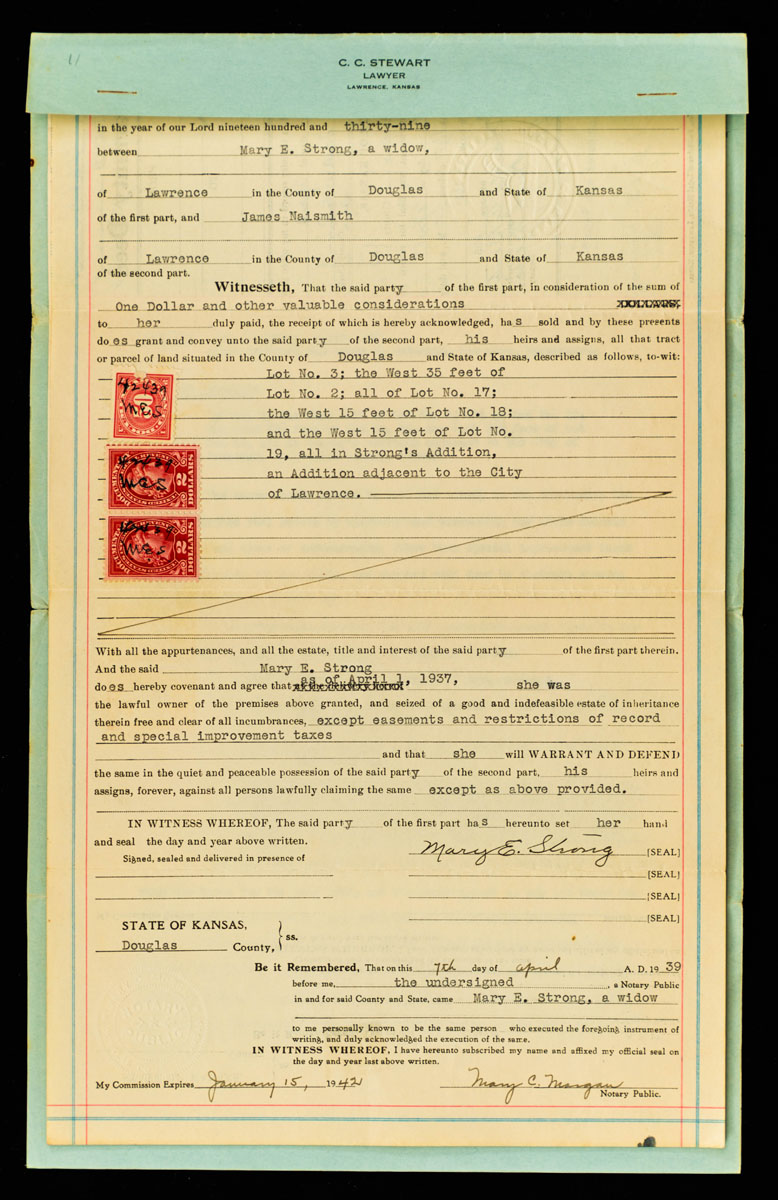 C. C. STEWART
LAWYER
LAWRENCE, KANSAS
in the year of our Lord nineteen hundred and thirty-nine
between Mary E. Strong, a widow,
of Lawrence in the County of Douglas and State of Kansas
of the first part, and James Naismith
of Lawrence in the County of Douglas and State of Kansas
of the second part.
Witnesseth, That the said party of the first part, in consideration of the sum of
One Dollar and other valuable considerations DOLLARS,
to her duly paid, the receipt of which is hereby acknowledged, has sold and by these presents
does grant and convey unto the said party of the second part, his heirs and assigns, all that tract
or parcel of land situated in the County of Douglas and State of Kansas, described as follows, to-wit:
Lot No. 3; the West 35 feet of
Lot No. 2; all of Lot No. 17;
the West 15 feet of Lot No. 18;
and the West 15 feet of Lot No.
19, all in Strong's Addition,
an Addition adjacent to the City
of Lawrence.
M.E.S
M.E.S
2 DOLLARS
M.E.S
2 DOLLARS
With all the appurtenances, and all the estate, title and interest of the said party of the first part therein.
And the said Mary E. Strong
as of April 1, 1937,
does hereby covenant and agree that she was
the lawful owner of the premises above granted, and seized of a good and indefeasible estate of inheritance
therein free and clear of all incumbrances, except easements and restrictions of record
and special improvement taxes
and that she will WARRANT AND DEFEND
the same in the quiet and peaceable possession of the said party of the second part, his heirs and
assigns, forever, against all persons lawfully claiming the same except as above provided.
IN WITNESS WHEREOF, The said party of the first part has hereunto set her hand
and seal the day and year above written.
Signed, sealed and delivered in presence of
Mary E. Strong [SEAL]
[SEAL]
[SEAL]
[SEAL]
STATE OF KANSAS,
Douglas County, ss.
Be it Remembered, That on this 7th day of april A. D. 1939
before me, the undersigned, a Notary Public
in and for said County and State, came Mary E. Strong, a widow
to me personally known to be the same person who executed the foregoing instrument of
writing, and duly acknowledged the execution of the same.
IN WITNESS WHEREOF, I have hereunto subscribed my name and affixed my official seal on
the day and year last above written.
My Commission Expires January 15, 1942 Mary C. Morgan
Notary Public.